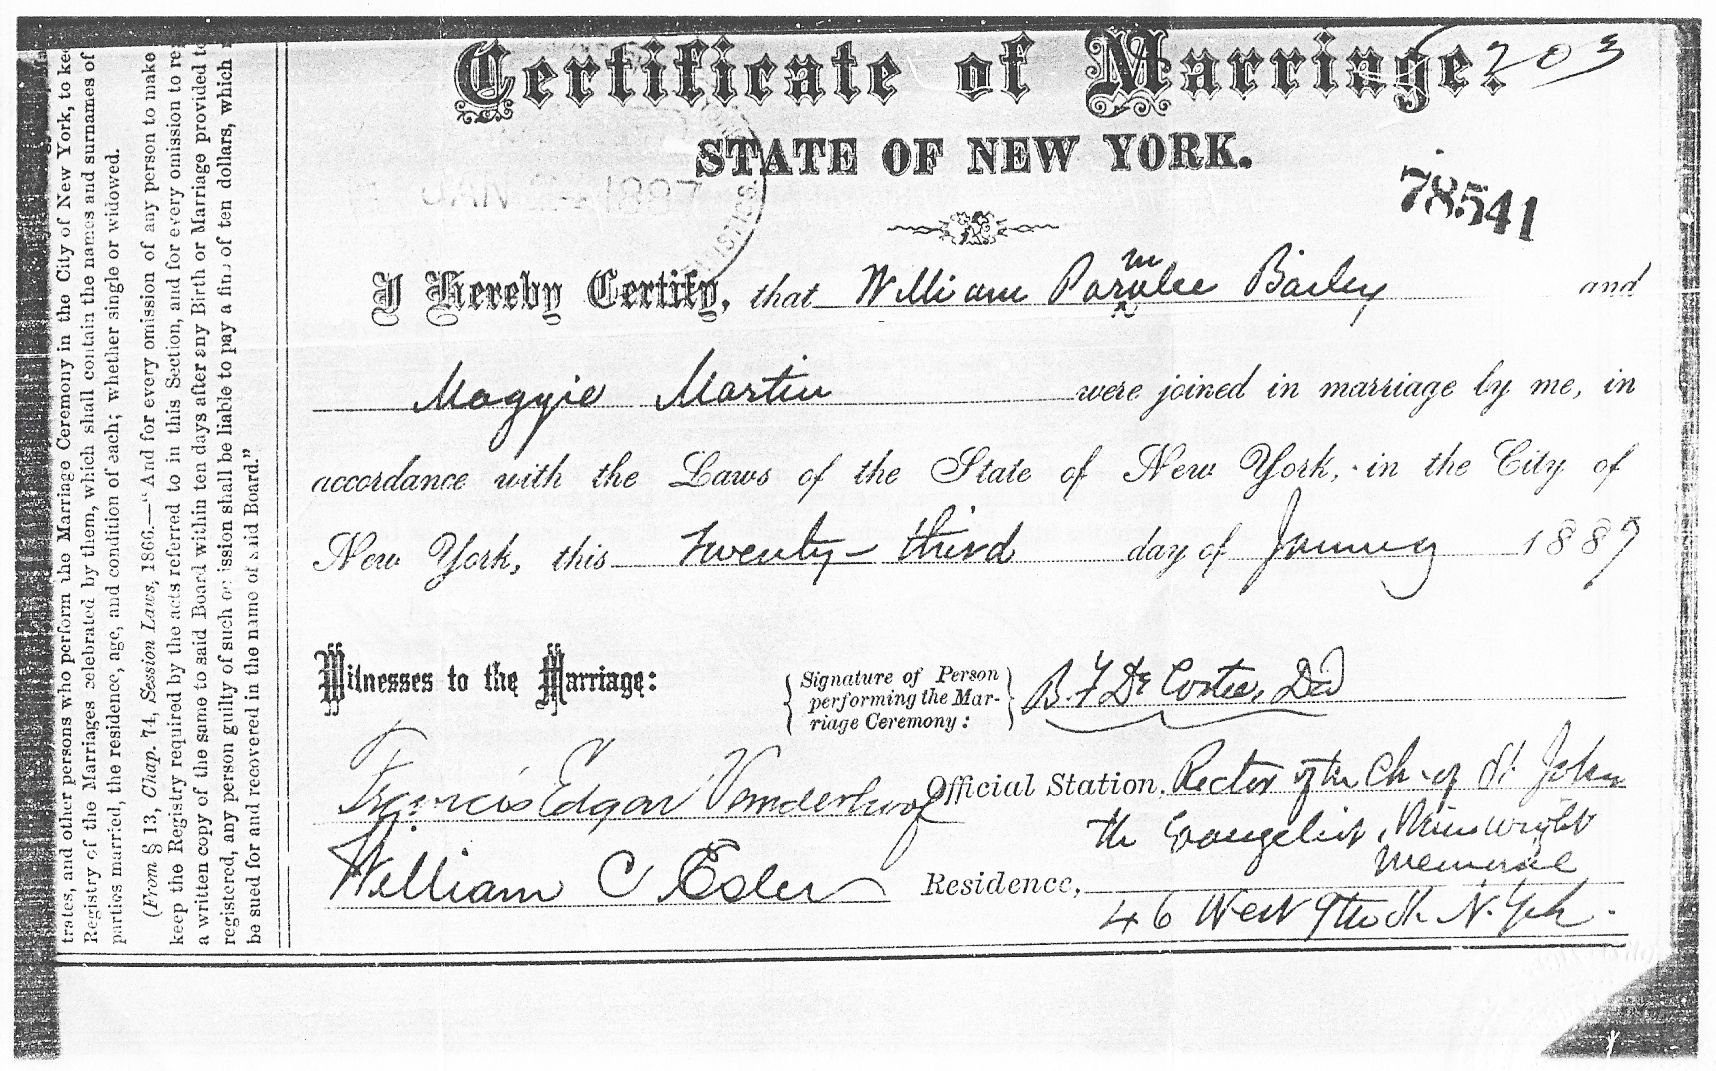 Certificate of Marriage. 203
STATE OF NEW YORK.
JAN 1887
78541
I Hereby Certify, that William Parmlee Bailey and
m
Maggie Martin were joined in marriage by me, in
accordance with the Laws of the State of New York, in the City of
New York, this Twenty-third day of January 1887
Witnesses to the Marriage:
{Signature of Person
performing the Mar-
riage Ceremony:} B. F. De Costa, DD
Francis Edgar Vanderhoof
Official Station, Rector of the Ch. of St John
the Evangelist, Wainwright
Memorial
William C Esler
Residence,
46 West 9th St. N. York.
trates, and other persons who perform the Marriage Ceremony in the City of New York, to kee
Registry of the Marriages celebrated by them, which shall contain the names and surnames of
parties married, the residence, age, and condition of each; whether single or widowed.
(From § 13, Chap. 74, Session Laws, 1866.—"And for every omission of any person to make
keep the Registry required by the acts referred to in this Section, and for every omission to re
a written copy of the same to said Board within ten days after any Birth or Marriage provided to
registered, any person guilty of such omission shall be liable to pay a fine of ten dollars, which
be sued for and recovered in the name of said Board."